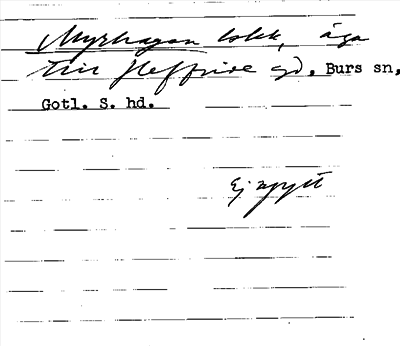 Myrhagen lokk, äga
till Häffride gd, Burs sn,
Gotl. S. hd.
Ej uppt